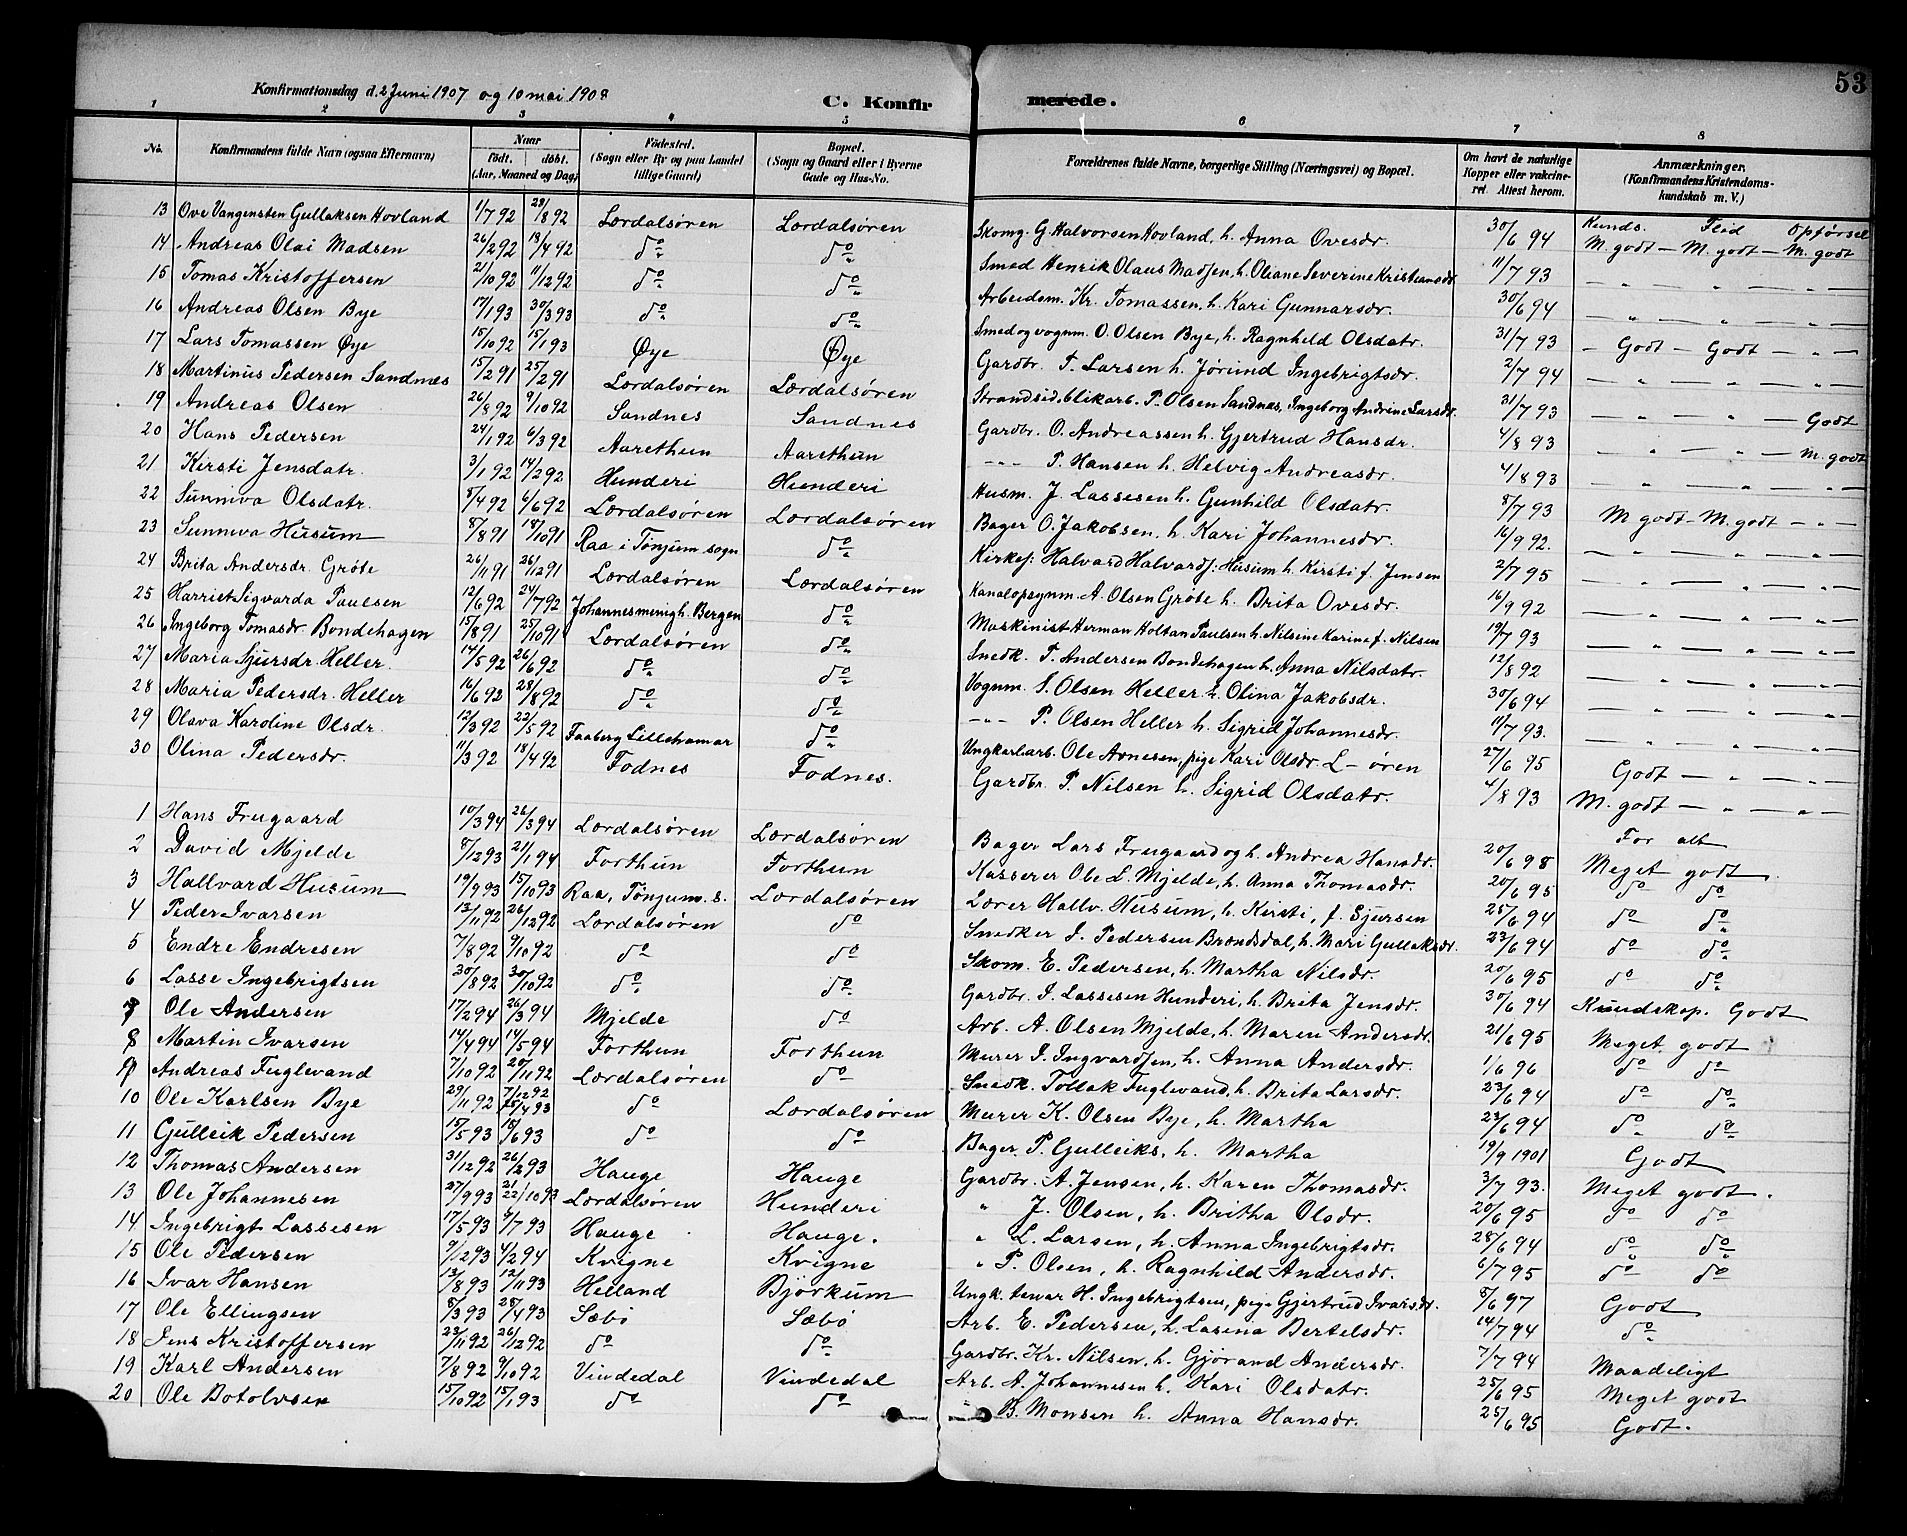 53
Konfirmationsdag d. 2 Juni 1907 og 10 mai 1908
C. Konfirmerede.
1 2 3 4 5 6 7 8
No. | Konfirmandens fulde Navn (ogsaa Efternavn) | Naar født. døbt. (Aar, Maaned og Dag) | Fødested. (Sogn eller By og paa Landet tillige Gaard) | Bopæl. (Sogn og Gaard eller i Byerne Gade og Hus-No. | Forældrenes fulde Navne, borgerlige Stilling (Næringsvei) og Bopæl. | Om havt de naturlige Kopper eller vakcineret. Attest herom. | Anmærkninger. (Konfirmandens Kristendomskundskab m. V.)
Kunds. Flid Opførsel
13 Ove Vangensten Gullaksen Hovland 1/7 92 28/8 92 Lærdalsøren Lærdalsøren Skomg. G. Halvorsen Hovland, h. Anna Ovesdr. 30/6 94 M. godt — M. godt — M. godt
14 Andreas Olai Madsen 26/2 92 13/4 92 do do Smed Henrik Olaus Madsen, h. Oliane Severine Kristiansdr 11/7 93 — " — " — " —
15 Tomas Kristoffersen 21/10 92 11/12 92 do do Arbeidsm. Kr. Tomassen, h. Kari Gunnarsdr. 30/6 94 — " — " — " —
16 Andreas Olsen Bye 17/1 93 30/3 93 do do Smed og vognm. O. Olsen Bye, h. Ragnhild Olsdatr. 31/7 93 — Godt — Godt — " —
17 Lars Tomassen Øye 15/10 92 15/1 93 Øye Øye Gardbr. T. Larsen h. Jørund Ingebrigtsdr. 2/7 94 — " — " — " —
18 Martinus Pedersen Sandnes 15/2 91 25/2 91 Lærdalsøren Lærdalsøren Strandsid. blikarb. P. Olsen Sandnes, Ingeborg Andrine Larsdr. 31/7 93 — " — " — Godt
19 Andreas Olsen 26/8 92 9/10 92 Sandnes Sandnes Gardbr. O. Andreassen h. Gjertrud Hansdr. 4/8 93 — " — " — M. godt
20 Hans Pedersen 24/1 92 6/3 92 Aarethun Aarethun —"— P. Hansen h. Helvig Andreasdr. 4/8 93 — " — " — " —
21 Kirsti Jensdatr. 3/1 92 14/2 92 Hunderi Hunderi Husm. J. Lassesen h. Gunhild Olsdatr. 8/7 93 M. godt — M. godt — " —
22 Sunniva Olsdatr. 5/4 92 6/6 92 Lærdalsøren Lærdalsøren Bager O. Jakobsen, h. Kari Johannesdr. 16/9 92. — " — " — " —
23 Sunniva Husum 8/8 91 18/10 91 Raa i Tønjum sogn do Kirkes: Halvard Halvards: Husum h. Kirsti f. Jensen 2/7 95 — " — " — " —
24 Brita Andersdr. Grøte 26/11 91 26/12 91 Lærdalsøren Lærdalsøren Kanalopsynm. A. Olsen Grøte h. Brita Ovesdr. 16/9 92 — " — " — " —
25 Harriet Sigvarda Paulsen 12/6 92 24/7 92 Johannesmenigh. Bergen do Maskinist Herman Holtan Paulsen h. Nilsine Karine f. Nilsen 19/7 93 — " — " — " —
26 Ingeborg Tomasdr. Bondehagen 15/8 91 25/10 91 Lærdalsøren do Snedk. T. Andersen Bondehagen h. Anna Nilsdatr. 12/8 92 — " — " — " —
27 Maria Sjursdr. Heller. 14/5 92 26/6 92 do do Vognm. S. Olsen Heller h. Olina Jakobsdr. 30/6 94 — " — " — " —
28 Maria Pedersdr. Heller 16/6 92 28/8 92 do do —"— P. Olsen Heller h. Sigrid Johannesdr. 11/7 93. — " — " — " —
29 Olava Karoline Olsdr. 12/3 92 22/5 92 Faaberg Lillehamar do Ungkarl arb. Ole Arnesen, pige Kari Olsdr. L—øren 27/6 95 Godt — " — " —
30 Olina Pedersdr. 11/3 92 18/4 92 Fodnes Fodnes. Gardbr. P. Nilsen h. Sigrid Olsdatr. 4/8 93 M. godt — " — " —
For alt
1 Hans Frugaard 10/3 94 26/3 94 Lærdalsøren Lærdalsøren Bager Lars Frugaard og h. Andrea Hansdr. 20/6 98 Meget godt.
2 David Mjelde 8/12 93 21/1 94 Forthun Forthun Kasserer Ole L. Mjelde, h. Anna Thomasdr. 20/6 95 do do
3 Hallvard Husum 19/9 93 15/10 93 Raa, Tønjum. s. Lærdalsøren Lærer Hallv. Husum, h. Kirsti, f. Sjursen 25/6 94 do do
4 Peder Ivarsen 13/11 92 26/12 92 Lærdalsøren do Snedker I. Pedersen Brændsdal, h. Mari Gullaksdr. 23/6 94 do do
5 Endre Endresen 7/8 92 9/10 92 do do Skom. E. Pedersen, h. Martha Nilsdr. 20/6 95 do do
6 Lasse Ingebrigtsen 30/8 92 30/10 92 do do Gardbr. I. Lassesen Hunderi, h. Brita Jensdr. 30/6 94 Kundskap. Godt
7 Ole Andersen 17/2 94 26/3 94 Mjelde do Arb. A. Olsen Mjelde, h. Maren Andersdr. 21/6 95 Meget godt
8 Martin Ivarsen 14/4 94 14/5 94 Forthun Forthun Murer I. Ingvardsen, h. Anna Andersdr. 1/6 96 do do
9 Andreas Fuglevand 7/10 92 20/11 92 Lærdalsøren do Snedk. Tollak Fuglevand, h. Brita Larsdr. 23/6 94 do do
10 Ole Karlsen Bye 29/11 92 7/12 92 25/4 93 do Lærdalsøren Murer K. Olsen Bye, h. Martha 23/6 94 do do
11 Gulleik Pedersen 15/5 93 18/6 93 do do Bager P. Gulleiks, h. Martha 19/9 1901 Godt
12 Thomas Andersen 31/12 92 26/2 93 Hauge Hauge Gardbr. A. Jensen, h. Karen Thomasdr. 3/7 93. Meget godt.
13 Ole Johannesen 27/9 93 21 22/10 93 Lærdalsøren Hunderi " J. Olsen, h. Britha Olsdr. 20/6 95 do do
14 Ingebrigt Lassesen 17/5 93 9/7 93 Hauge Hauge. " L. Larsen, h. Anna Ingebrigtsdr. 28/6 94 do do
15 Ole Pedersen 9/12 93 4/2 94 Kvigne Kvigne " P. Olsen, h. Ragnhild Andersdr. 6/7 95 do do
16 Ivar Hansen 13/8 93 12/11 93 Helland Bjørkum Ungk. tenar H. Ingebrigtsen, pige Gjertrud Ivarsdr. 8/6 97 Godt
17 Ole Ellingsen 8/3 93 25/4 93 Sæbø Sæbø Arb. E. Pedersen, h. Lasina Bertelsdr. 14/7 94 do
18 Jens Kristoffersen 23/11 92 26/12 92 do do Gardbr. Kr. Nilsen, h. Gjørand Andersdr. 7/7 94 Maadeligt
19 Karl Andersen 7/8 92 9/10 92 Vindedal Vindedal Arb. A. Johannesen h. Kari Olsdatr. 25/6 95 Meget godt
20 Ole Botolvsen 15/10 92 15/1 93 do do " B. Monsen h. Anna Hansdr. 25/6 95 Godt.